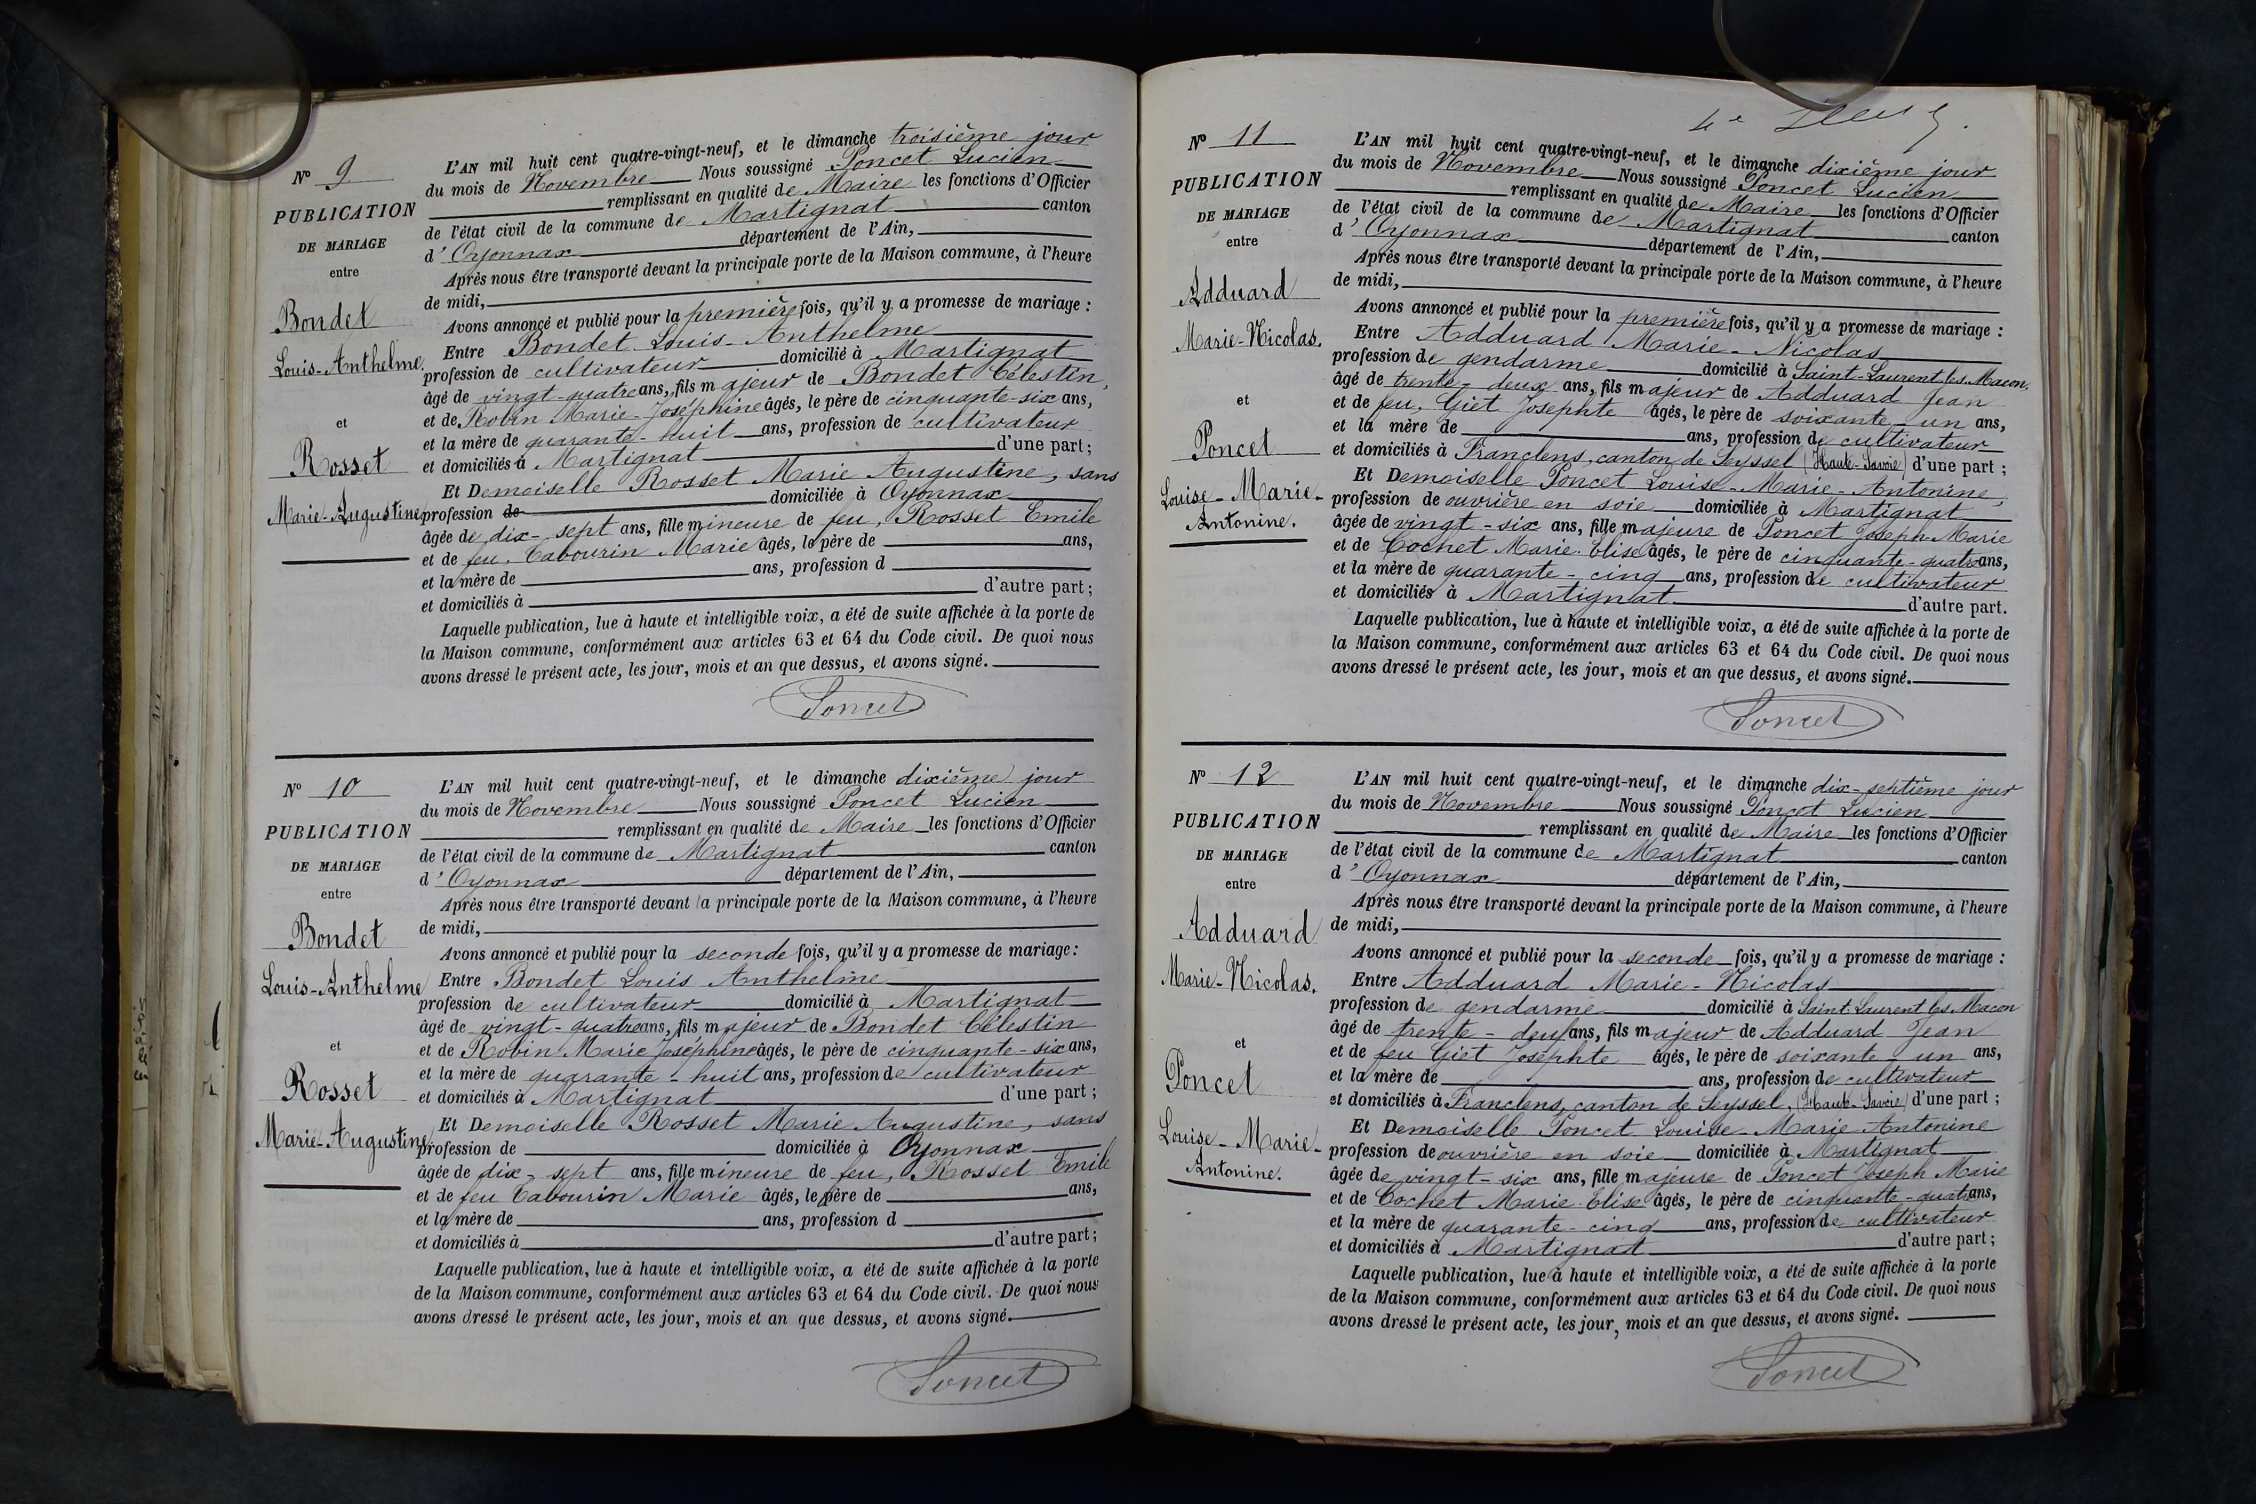 N° 9
PUBLICATION
DE MARIAGE
entre
Bondet
Louis-Anthelme.
et
Rosset
Marie-Augustine
L'AN mil huit cent quatre-vingt-neuf, et le dimanche troisième jour
du mois de Novembre Nous soussigné Poncet Lucien
remplissant en qualité de Maire les fonctions d'Officier
de l'état civil de la commune de Martignat canton
d'Oyonnax département de l'Ain,
Après nous être transporté devant la principale porte de la Maison commune, à l'heure
de midi,
Avons annoncé et publié pour la première fois, qu'il y a promesse de mariage :
Entre Bondet Louis-Anthelme
profession de cultivateur domicilié à Martignat
âgé de vingt-quatre ans, fils majeur de Bondet Célestin,
et de Robin Marie-Joséphine âgés, le père de cinquante-six ans,
et la mère de quarante-huit ans, profession de cultivateur
et domiciliés à Martignat d'une part ;
Et Demoiselle Rosset Marie Augustine, sans
profession de domiciliée à Oyonnax
âgée de dix-sept ans, fille mineure de feu, Rosset Emile
et de feu, Cabourin Marie âgés, le père de ans,
et la mère de ans, profession d
et domiciliés à d'autre part ;
Laquelle publication, lue à haute et intelligible voix, a été de suite affichée à la porte de
la Maison commune, conformément aux articles 63 et 64 du Code civil. De quoi nous
avons dressé le présent acte, les jour, mois et an que dessus, et avons signé.
Poncet
N° 10
PUBLICATION
DE MARIAGE
entre
Bondet
Louis-Anthelme
et
Rosset
Marie-Augustine
L'AN mil huit cent quatre-vingt-neuf, et le dimanche dixième jour
du mois de Novembre Nous soussigné Poncet Lucien
remplissant en qualité de Maire les fonctions d'Officier
de l'état civil de la commune de Martignat canton
d'Oyonnax département de l'Ain,
Après nous être transporté devant la principale porte de la Maison commune, à l'heure
de midi,
Avons annoncé et publié pour la seconde fois, qu'il y a promesse de mariage :
Entre Bondet Louis Anthelme
profession de cultivateur domicilié à Martignat
âgé de vingt-quatre ans, fils majeur de Bondet Célestin
et de Robin Marie Joséphine âgés, le père de cinquante-six ans,
et la mère de quarante-huit ans, profession de cultivateur
et domiciliés à Martignat d'une part ;
Et Demoiselle Rosset Marie Augustine, sans
profession de domiciliée à Oyonnax
âgée de dix-sept ans, fille mineure de feu, Rosset Emile
et de feu Cabourin Marie âgés, le père de ans,
et la mère de ans, profession d
et domiciliés à d'autre part ;
Laquelle publication, lue à haute et intelligible voix, a été de suite affichée à la porte
de la Maison commune, conformément aux articles 63 et 64 du Code civil. De quoi nous
avons dressé le présent acte, les jour, mois et an que dessus, et avons signé.
Poncet
N° 11
PUBLICATION
DE MARIAGE
entre
Adduard
Marie-Nicolas.
et
Poncet
Louise-Marie-
Antonine.
L'AN mil huit cent quatre-vingt-neuf, et le dimanche dixième jour
du mois de Novembre Nous soussigné Poncet Lucien
remplissant en qualité de Maire les fonctions d'Officier
de l'état civil de la commune de Martignat canton
d'Oyonnax département de l'Ain,
Après nous être transporté devant la principale porte de la Maison commune, à l'heure
de midi,
Avons annoncé et publié pour la première fois, qu'il y a promesse de mariage :
Entre Adduard Marie-Nicolas
profession de gendarme domicilié à Saint-Laurent les Macon.
âgé de trente-deux ans, fils majeur de Adduard Jean
et de feu, Giet Josephte âgés, le père de soixante-un ans,
et la mère de ans, profession de cultivateur
et domiciliés à Franclens, canton de Seyssel (Haute-Savoie) d'une part ;
Et Demoiselle Poncet Louise-Marie-Antonine,
profession de ouvrière en soie domiciliée à Martignat
âgée de vingt-six ans, fille majeure de Poncet Joseph-Marie
et de Cochet Marie-Elise âgés, le père de cinquante-quatre ans,
et la mère de quarante-cinq ans, profession de cultivateur
et domiciliés à Martignat d'autre part.
Laquelle publication, lue à haute et intelligible voix, a été de suite affichée à la porte de
la Maison commune, conformément aux articles 63 et 64 du Code civil. De quoi nous
avons dressé le présent acte, les jour, mois et an que dessus, et avons signé.
Poncet
N° 12
PUBLICATION
DE MARIAGE
entre
Adduard
Marie-Nicolas.
et
Poncet
Louise-Marie-
Antonine.
L'AN mil huit cent quatre-vingt-neuf, et le dimanche dix-septième jour
du mois de Novembre Nous soussigné Poncet Lucien
remplissant en qualité de Maire les fonctions d'Officier
de l'état civil de la commune de Martignat canton
d'Oyonnax département de l'Ain,
Après nous être transporté devant la principale porte de la Maison commune, à l'heure
de midi,
Avons annoncé et publié pour la seconde fois, qu'il y a promesse de mariage :
Entre Adduard Marie-Nicolas
profession de gendarme domicilié à Saint-Laurent les Macon
âgé de trente-deux ans, fils majeur de Adduard Jean
et de feu Giet Josephte âgés, le père de soixante-un ans,
et la mère de ans, profession de cultivateur
et domiciliés à Franclens, canton de Seyssel, (Haute-Savoie) d'une part ;
Et Demoiselle Poncet Louise-Marie Antonine
profession de ouvrière en soie domiciliée à Martignat
âgée de vingt-six ans, fille majeure de Poncet Joseph Marie
et de Cochet Marie-Elise âgés, le père de cinquante-quatre ans,
et la mère de quarante-cinq ans, profession de cultivateur
et domiciliés à Martignat d'autre part ;
Laquelle publication, lue à haute et intelligible voix, a été de suite affichée à la porte
de la Maison commune, conformément aux articles 63 et 64 du Code civil. De quoi nous
avons dressé le présent acte, les jour, mois et an que dessus, et avons signé.
Poncet